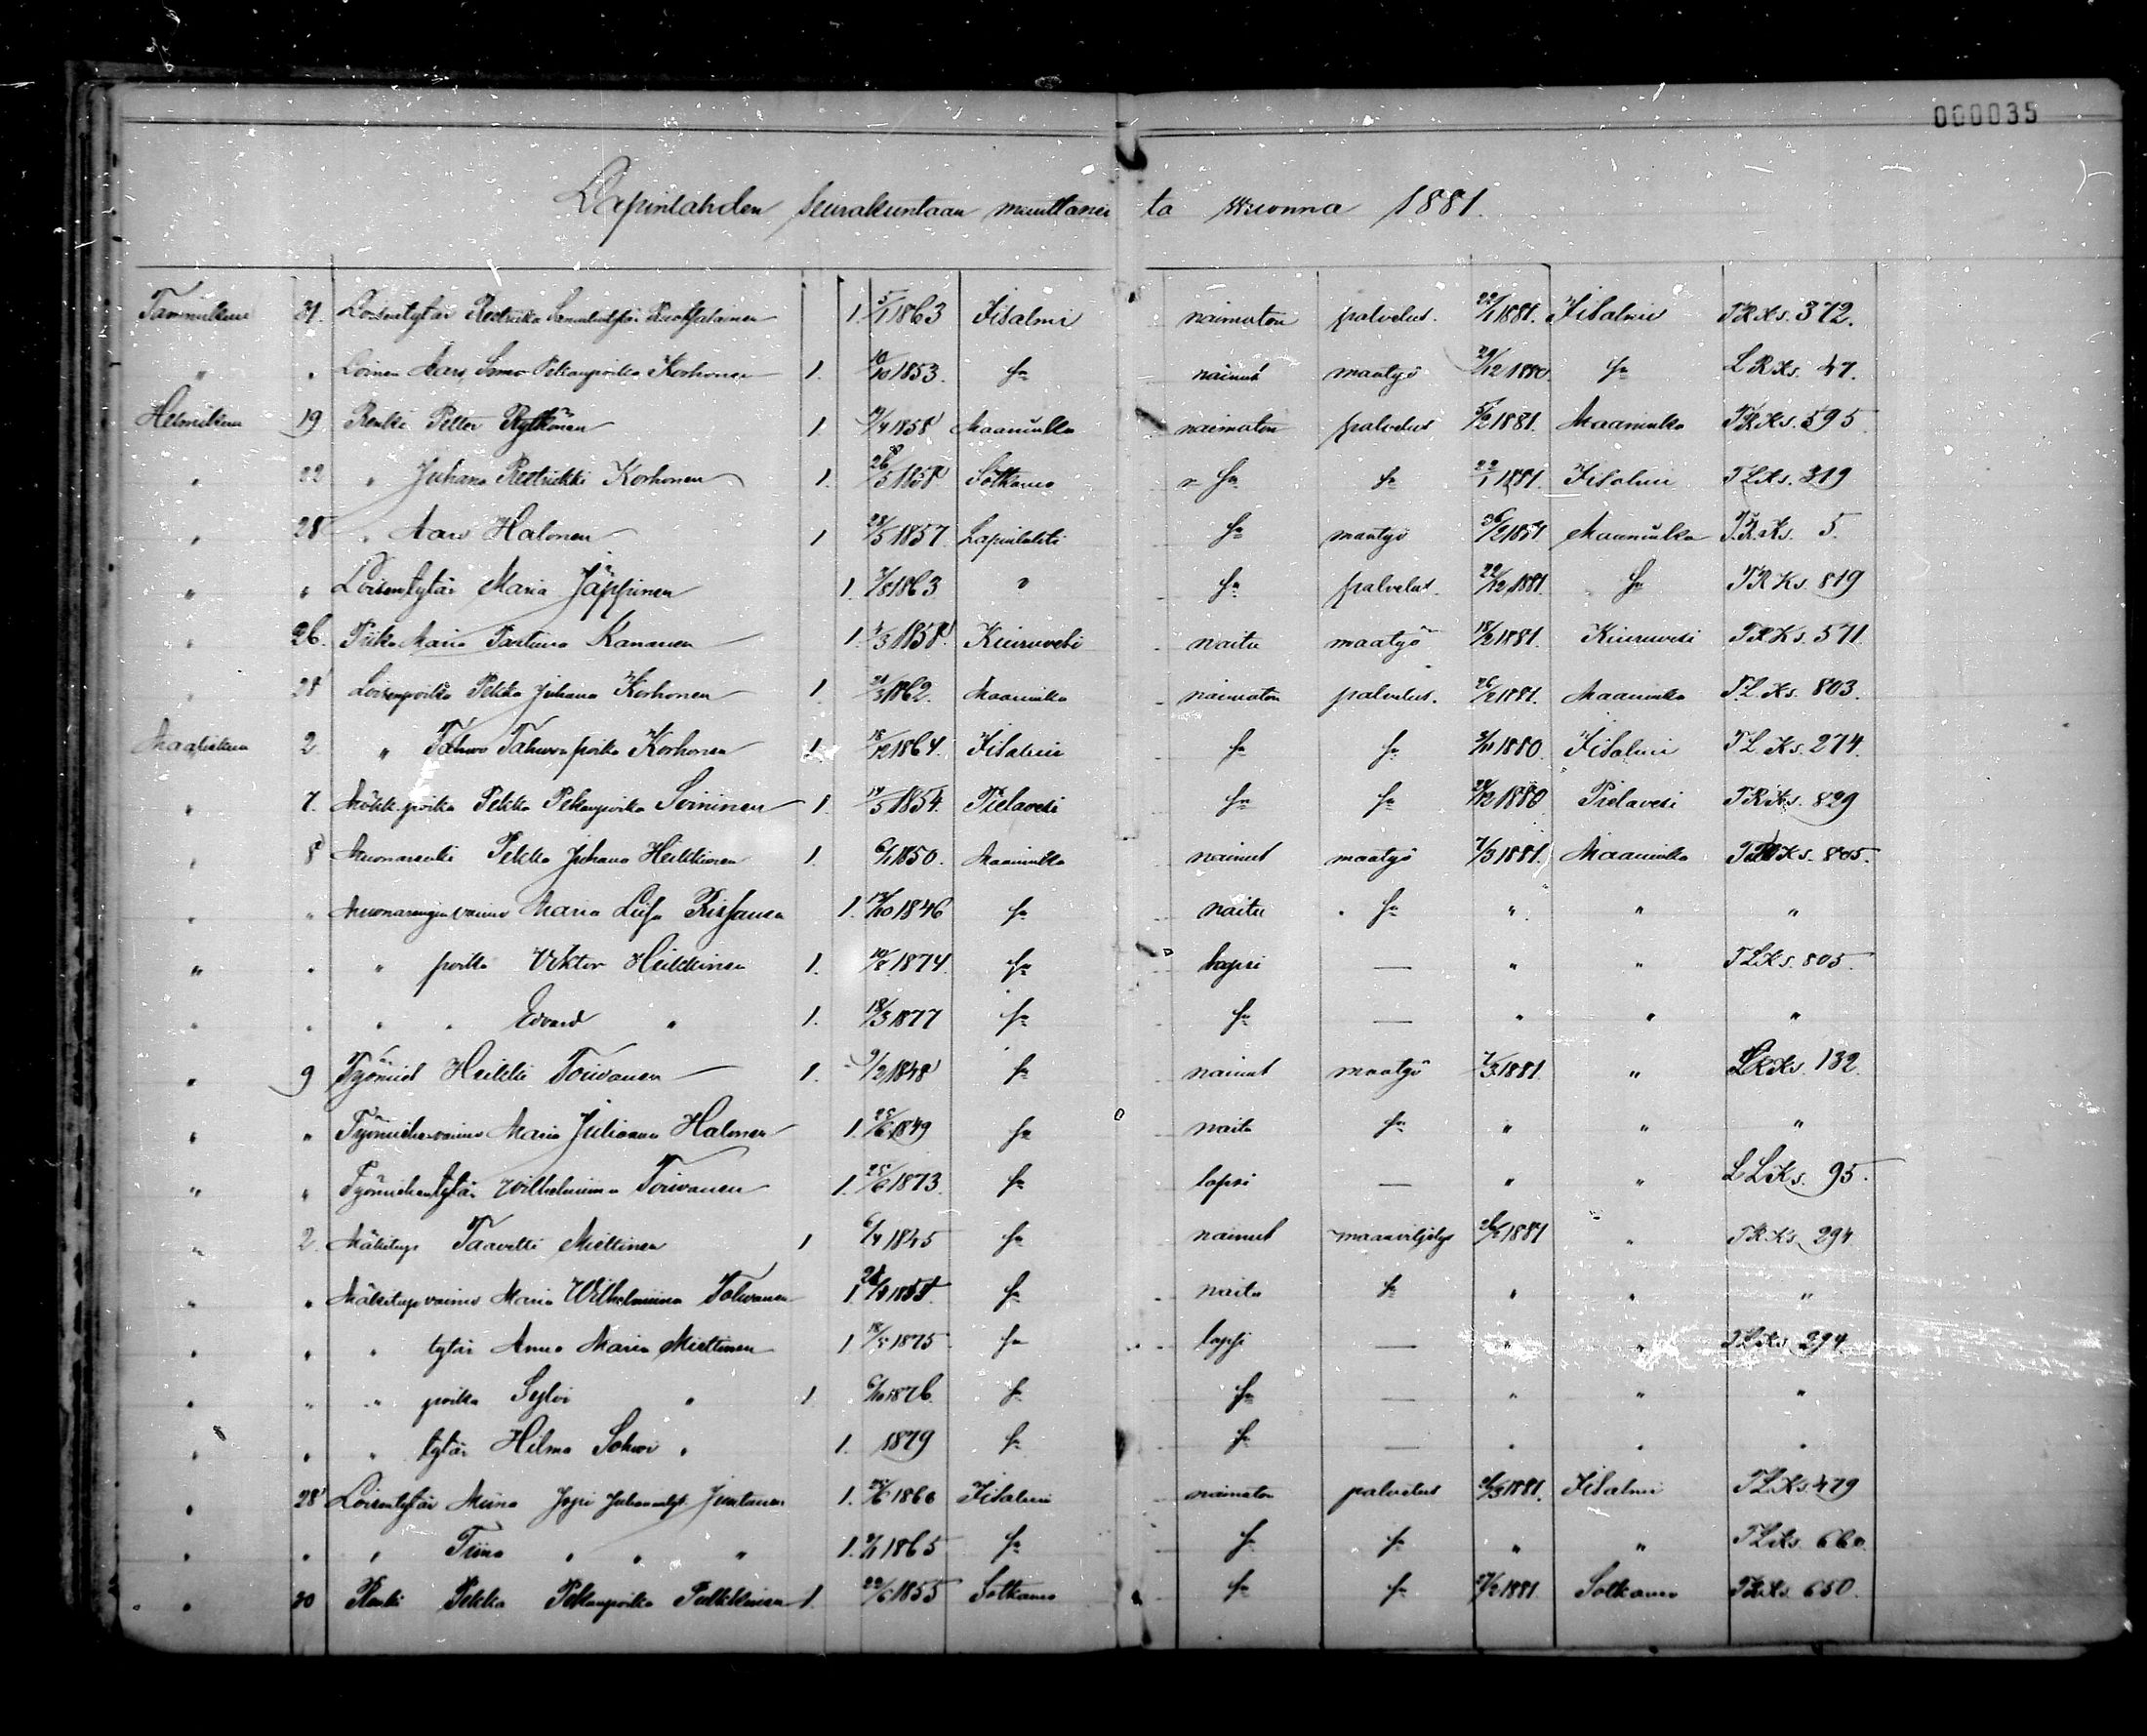 000035
Lapinlahden seurakuntaan muuttaneita vuonna 1881.
Tammikuu 31. Loisentytär Reetrikka 1. 5/1 1863 Iisalmi naimaton palvelus. 22/1 1881. Iisalmi T.R.Ks. 372.
" " Loinen Aaro Simo Pekanpoika Korhonen 1. 10/10 1853. sa nainut maatyö 29/12 1880. sa L.R.Ks. 47.
Helmikuu 19 Renki Petter Rytkönen 1. 9/4 1858 Maaninka naimaton palvelus 5/2 1881. Maaninka T.R.Ks. 595
" 22 " Juhana Reetrikki Korhonen 1. 26/5 1858 Sotkamo " sa sa 22/1 1881. Iisalmi T.L.Ks. 319
" 28 " Aaro Halonen 1 28/5 1857. Lapinlahti sa maatyö Maaninka T.R.Ks. 5.
" " Loisentytär Maria Jäppinen 1. 3/8 1863 " sa palvelus. 22/12 1881. sa T.R.Ks. 819
" 26. Piika Maria Kananen 1. 4/3 1858. Kiuruvesi naitu maatyö 18/2 1881. Kiuruvesi T.R.Ks. 571.
" 28 Loisenpoika Pekka Juhana Korhonen 1. 21/3 1862. Maaninka naimaton palvelus. 26/2 1881. Maaninka T.L.Ks. 803.
Maaliskuu 2. " Tahvo Tahvonpoika Korhonen 1. 18/12 1864. Iisalmi sa sa 1880. Iisalmi T.L.Ks. 274.
" 7. Mökk.poika Pekka Pekanpoika Soininen 1. 19/5 1854. Pielavesi sa sa 28/12 1880 Pielavesi T.R.Ks. 829
" 8 Muonarenki Pekka Juhana Heikkinen 1. 6/1 1850. Maaninka nainut maatyö 7/3 1881. Maaninka Ks. 805.
" " Muonarenginvaimo Maria Liisa Rissanen 1. 1846 sa naitu " sa " " "
" " " poika Viktor Heikkinen 1. 10/8 1874. sa lapsi — " " T.L.Ks. 805.
" " " " Edvard " 1. 18/3 1877 sa sa — " " "
" 9 Työmies Heikki Toivanen 1. 9/2 1848 sa nainut maatyö 7/3 1881. " L.R.Ks. 132.
" " Työmiehenvaimo Maria Juliana Halonen 1. 25/6 1849 sa naitu sa " " "
" " Työmiehentytär Wilhelmiina Toivanen 1. 25/6 1873. sa lapsi — " " L.L.Ks. 95.
" 2. Mäkitup. Taavetti Miettinen 1 6/4 1845 sa nainut maanviljelys 1881 " T.R.Ks. 294
" " Mäkitup.vaimo Maria Wilhelmiina Tolvanen 1. sa naitu sa " " "
" " " tytär Anna Maria Miettinen 1 18/5 1875 sa lapsi — " " T.L.Ks. 294.
" " " poika " 1 6/10 1876. sa sa — " " "
" " " tytär Hilma " 1. 1879 sa sa — " " "
" 28 Loisentytär Miina Juhanantyt. Juntunen 1. 1860 Iisalmi naimaton palvelus 1881. Iisalmi T.L.Ks. 479
" " " Tiina " " " 1. 1865 sa sa sa " " T.L.Ks. 660.
" 30 Renki Pekka Pekanpoika Pulkkinen 1. 22/6 1855 Sotkamo sa sa 27/2 1881. Sotkamo T.R.Ks. 650.